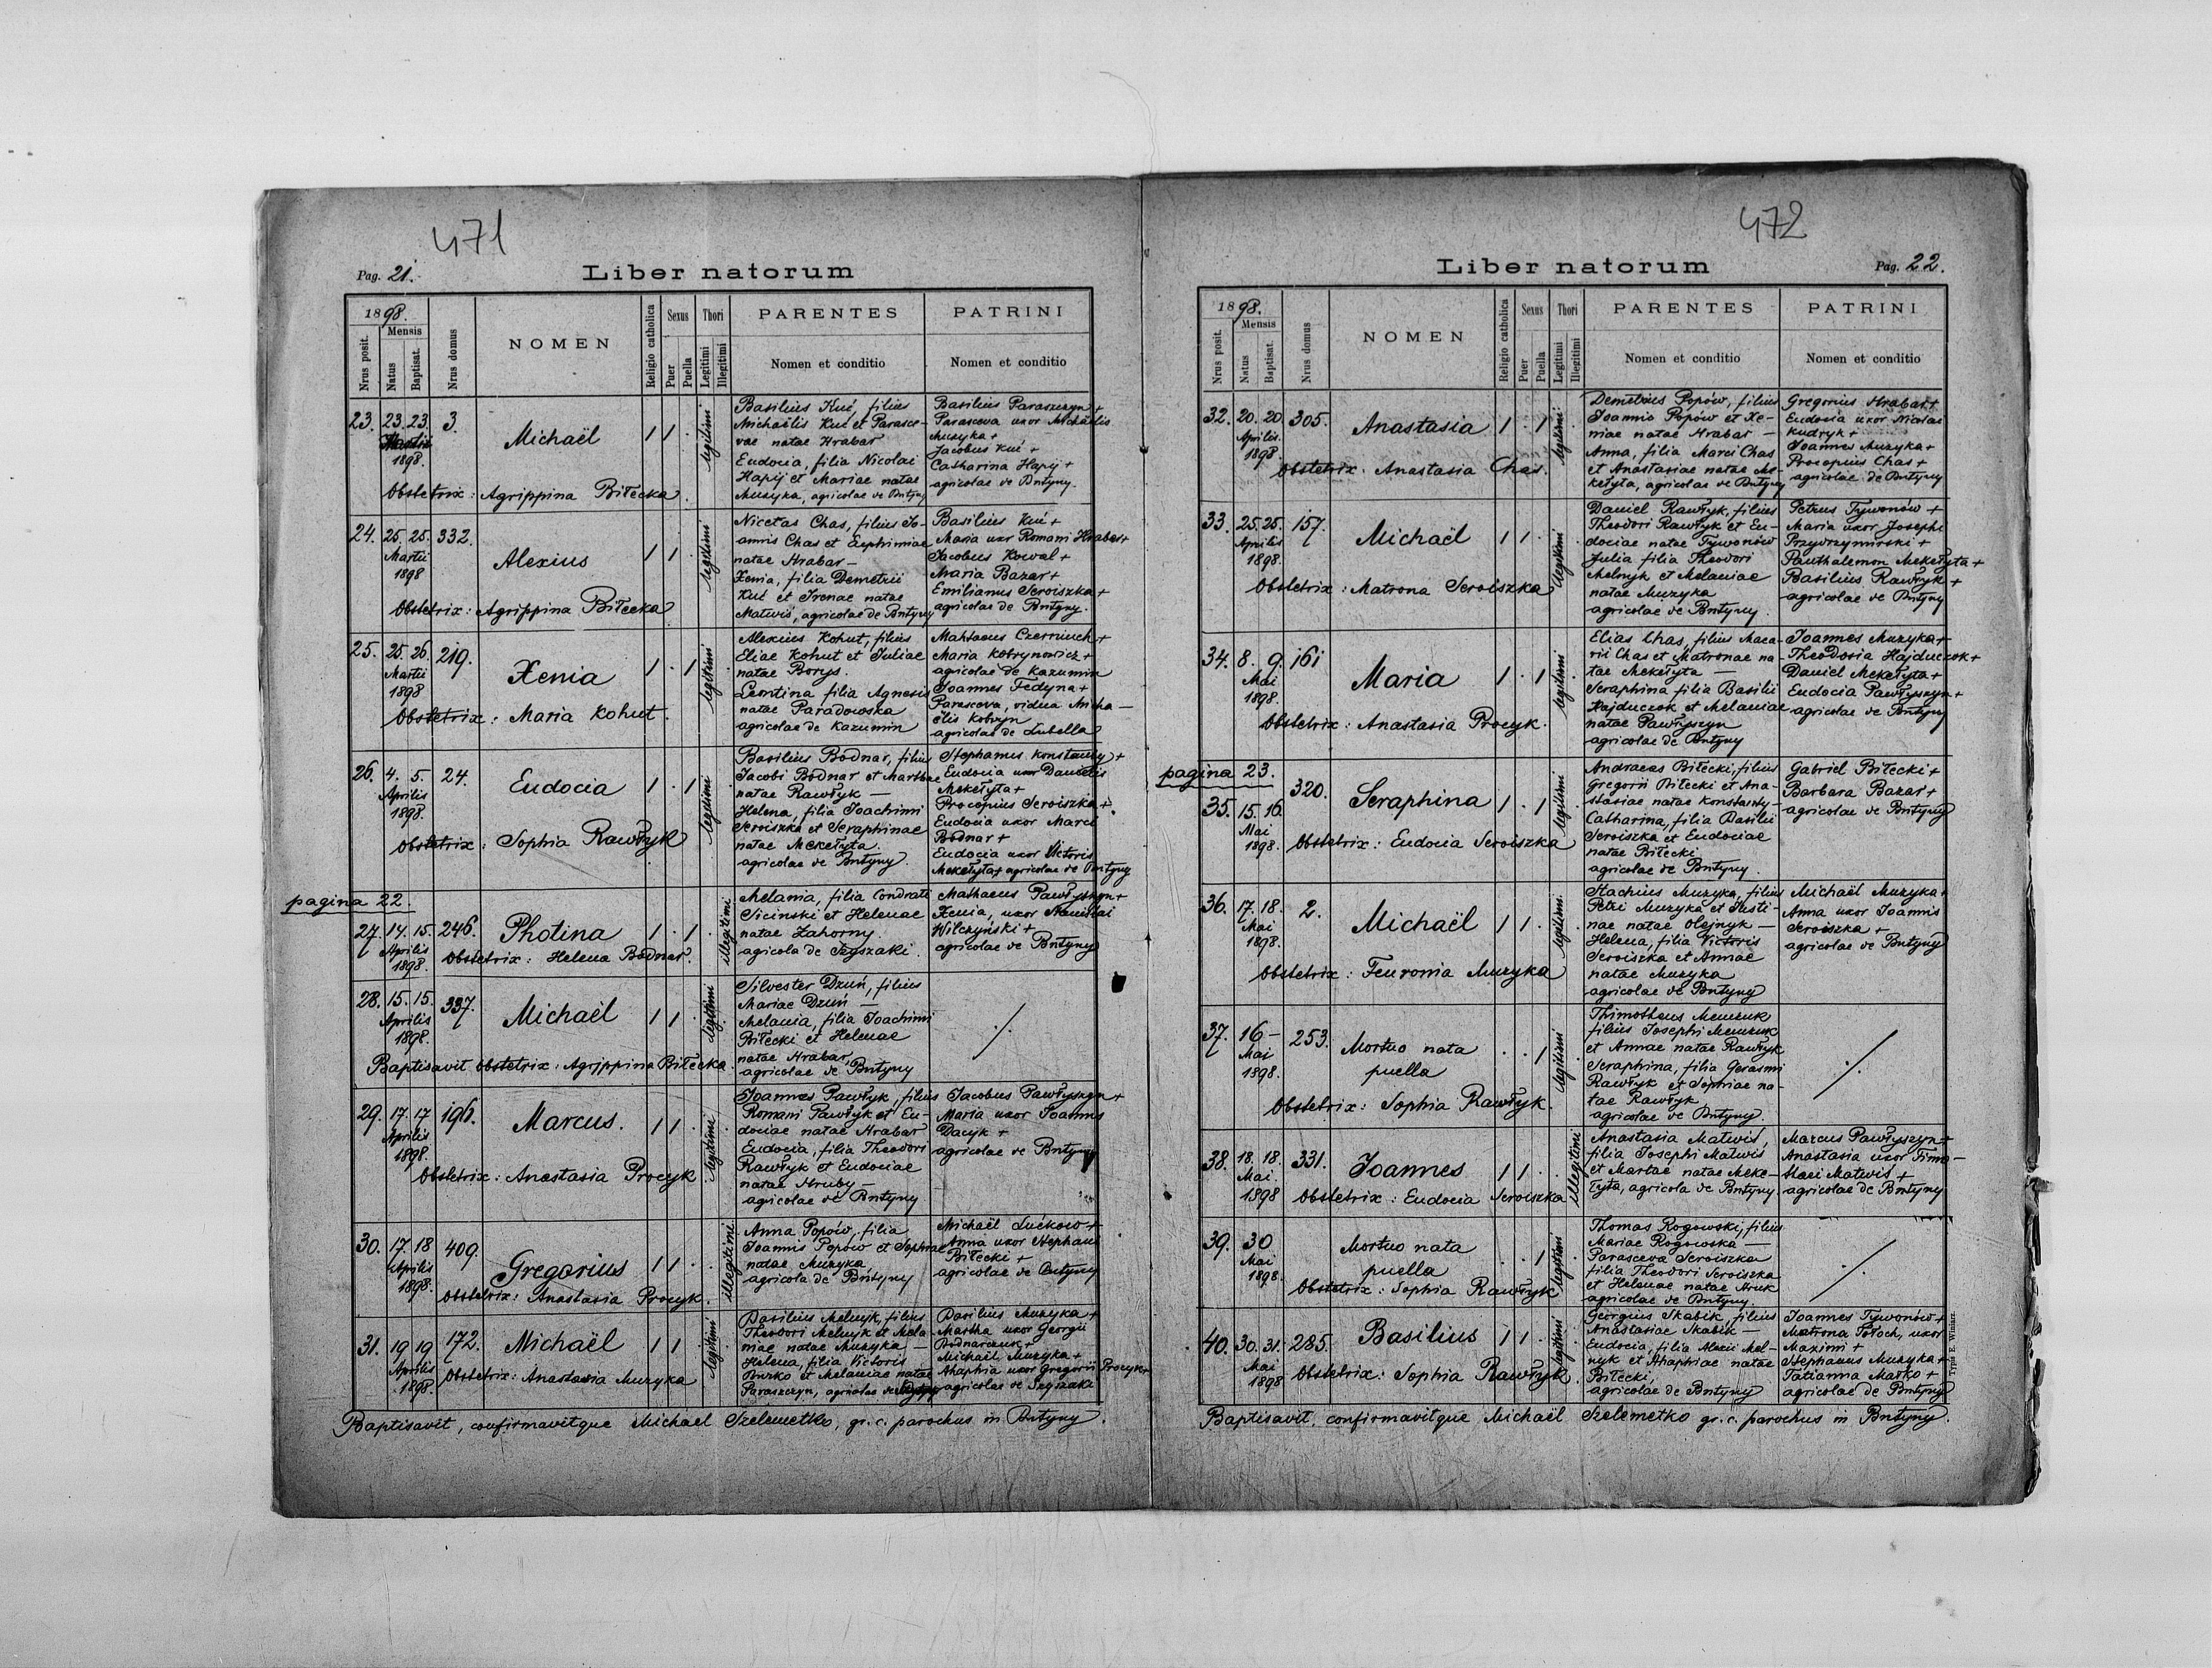 471
Pag. 21.
Liber natorum
1898.
Nrus posit.
Mensis
Natus
Baptisat.
Nrus domus
NOMEN
Religio catholica
Sexus
Puer
Puella
Thori
Legitimi
Illegitimi
PARENTES
Nomen et conditio
PATRINI
Nomen et conditio
23. 23. 23. 3.
Martii
1898.
Michaël 1 1 .
legitimi
Basilius Kuć, filius
Michaëlis Kuć et Parasce-
vae natae Hrabar
Eudocia, filia Nicolai
Hapij et Mariae natae
Muzyka, agricolae de Bntyny
Basilius Paraszczyn +
Parasceva uxor Michaëlis
Muzyka +
Jacobus Kuć +
Catharina Hapij +
agricolae de Bntyny.
Obstetrix: Agrippina Biłecka.
24. 25. 25. 332.
Martii
1898
Alexius 1 1 .
legitimi
Nicetas Chas, filius Jo-
annis Chas et Euphimiae
natae Hrabar —
Xenia, filia Demetrii
Kuć et Irenae natae
Matwiś, agricolae de Bntyny
Basilius Kuć +
Maria uxor Romani Hrabar +
Jacobus Kowal +
Maria Bazar +
Emilianus Seroiszka +
agricolae de Bntyny.
Obstetrix: Agrippina Biłecka
25. 25. 26. 219.
Martii
1898
Xenia 1 . 1
legitimi
Alexius Kohut, filius
Eliae Kohut et Juliae
natae Borys.
Leontina filia Agnesis
natae Paradowska
agricolae de Kazumin
Mathaeus Czerniuch +
Maria Kobrynowicz +
agricolae de Kazumin
Joannes Fedyna +
Parasceva, vidua Micha-
ëlis Kobryn
agricolae de Lubella
Obstetrix: Maria Kohut.
26. 4. 5. 24.
Aprilis
1898.
Eudocia 1 . 1
legitimi
Basilius Bodnar, filius
Jacobi Bodnar et Marthae
natae Rawłyk —
Helena, filia Joachimi
Seroiszka et Seraphinae
natae Mekełyta.
agricolae de Bntyny.
Stephanus Konstanty +
Eudocia uxor Danielis
Mekełyta +
Procopius Seroiszka +
Eudocia uxor Marci
Bodnar +
Eudocia uxor Victoris
Mekełyta + agricolae de Bntyny
Obstetrix: Sophia Rawłyk
pagina 22.
27. 14. 15. 246.
Aprilis
1898.
Photina 1 . 1 .
illegitimi
Melania, filia Condrati
Sicinski et Helenae
natae Zahorny.
agricola de Szyszaki.
Mathaeus Pawłyszyn +
Xenia, uxor
Wilczyński +
agricolae de Bntyny
Obstetrix: Helena Bodnar.
28. 15. 15. 337.
Aprilis
1898.
Michaël 1 1 .
legitimi
Silvester Dzuń, filius
Mariae Dzuń —
Melania, filia Joachimi
Biłecki et Helenae
natae Hrabar,
agricolae de Bntyny
Baptisavit obstetrix: Agrippina Biłecka.
29. 17. 17 196.
Aprilis
1898.
Marcus. 1 1 .
legitimi
Joannes Pawłyk, filius
Romani Pawłyk et Eu-
dociae natae Hrabar
Eudocia, filia Theodori
Rawłyk et Eudociae
natae Hruby —
agricolae de Bntyny.
Jacobus Pawłyszyn +
Maria uxor Joannis
Dacyk +
agricolae de Bntyny
Obstetrix: Anastasia Procyk.
30. 17. 18 409.
Aprilis
1898.
Gregorius 1 1 .
illegitimi
Anna Popów, filia
Joannis Popów et Sophiae
natae Muzyka
agricola de Bntyny
Michaël Lućkow +
Anna uxor Stephani
Biłecki +
agricolae de Bntyny
Obstetrix: Anastasia Procyk.
31. 19 19 172.
Aprilis
1898.
Michaël 1 1
legitimi
Basilius Melnyk, filius
Theodori Melnyk et Mela-
niae natae Muzyka —
Helena, filia Victoris
Burko et Melaniae natae
Paraszczyn, agricolae de Bntyny
Basilius Muzyka +
Martha uxor Georgii
Bodnarczuk +
Michaël Muzyka +
Ahaphia uxor Gregorii Procyk +
agricolae de Szyszaki
Obstetrix: Anastasia Muzyka
Baptisavit, confirmavitque Michaël Szelemetko, gr. c. parochus in Bntyny.
472
Liber natorum
Pag. 22.
1898.
Nrus posit.
Mensis
Natus
Baptisat.
Nrus domus
NOMEN
Religio catholica
Sexus
Puer
Puella
Thori
Legitimi
Illegitimi
PARENTES
Nomen et conditio
PATRINI
Nomen et conditio
32. 20. 20 305.
Aprilis.
1898
Anastasia 1 . 1
legitimi
Demetrius Popów, filius
Joannis Popów et Xe-
niae natae Hrabar —
Anna, filia Marci Chas
et Anastasiae natae Me-
kełyta, agricolae de Bntyny
Gregorius Hrabar +
Eudocia uxor Nicolai
Kudryk +
Joannes Muzyka +
Procopius Chas +
agricolae de Bntyny
Obstetrix: Anastasia Chas.
33. 25. 25. 157.
Aprilis
1898.
Michaël 1 1 .
legitimi
Daniel Rawłyk, filius
Theodori Rawłyk et Eu-
dociae natae Tywonów
Julia filia Theodori
Melnyk et Melaniae
natae Muzyka
agricolae de Bntyny.
Petrus Tywonów +
Maria uxor Josephi
Przydrzymirski +
Panthalemon Mekełyta +
Basilius Rawłyk +
agricolae de Bntyny
Obstetrix: Matrona Seroiszka
34. 8. 9. 161
Mai
1898.
Maria 1 . 1
legitimi
Elias Chas, filius Maca-
rii Chas et Matronae na-
tae Mekełyta —
Seraphina filia Basilii
Hajduczok et Melaniae
natae Pawłyszyn
agricolae de Bntyny
Joannes Muzyka +
Theodosia Hajduczok +
Daniel Mekełyta +
Eudocia Pawłyszyn +
agricolae de Bntyny
Obstetrix: Anastasia Procyk.
pagina 23.
35. 15. 16. 320.
Mai
1898.
Seraphina 1 . 1
legitimi
Andraeas Biłecki, filius
Gregorii Biłecki et Ana-
stasiae natae Konstanty-
Catharina, filia Basilii
Seroiszka et Eudociae
natae Biłecki
agricolae de Bntyny.
Gabriel Biłecki +
Barbara Bazar +
agricolae de Bntyny
Obstetrix: Eudocia Seroiszka
36. 17. 18. 2.
Mai
1898.
Michaël 1 1 .
legitimi.
Stachius Muzyka, filius
Petri Muzyka et Justi-
nae natae Olejnyk —
Helena, filia Victoris
Seroiszka et Annae
natae Muzyka
agricolae de Bntyny
Michaël Muzyka +
Anna uxor Joannis
Seroiszka +
agricolae de Bntyny
Obstetrix: Feuronia Muzyka
37. 16 — 253.
Mai
1898.
Mortuo nata
puella . . 1
legitimi
Thimotheus Menzuk
filius Josephi Menzuk
et Annae natae Rawłyk
Seraphina, filia Gerasimi
Rawłyk et Sophiae na-
tae Rawłyk,
agricolae de Bntyny.
Obstetrix: Sophia Rawłyk.
38. 18. 18. 331.
Mai.
1898
Joannes 1 1 .
illegitimi
Anastasia Matwiś,
filia Josephi Matwiś
et Martae natae Meke-
łyta, agricola de Bntyny
Marcus Pawłyszyn +
Anastasia uxor Timo-
thei Matwiś +
agricolae de Bntyny
Obstetrix: Eudocia Seroiszka
39. 30
Mai
1898.
Mortuo nata
puella . 1
legitimi
Thomas Rogowski, filius
Mariae Rogowska —
Parasceva Seroiszka
filia Theodori Seroiszka
et Helenae natae Hruk
agricolae de Bntyny.
Obstetrix: Sophia Rawłyk
40. 30. 31. 285.
Mai
1898
Basilius 1 1 .
legitimi
Georgius Skabik, filius
Anastasiae Skabik —
Eudocia, filia Alexii Mel-
nyk et Ahaphiae natae
Biłecki,
agricolae de Bntyny
Joannes Tywonów +
Matrona Potoch, uxor
Maximi +
Stephanus Muzyka +
Tatianna Matko +
agricolae de Bntyny
Obstetrix: Sophia Rawłyk.
Typis E. Winiarz
Baptisavit, confirmavitque Michaël Szelemetko gr. c. parochus in Bntyny.